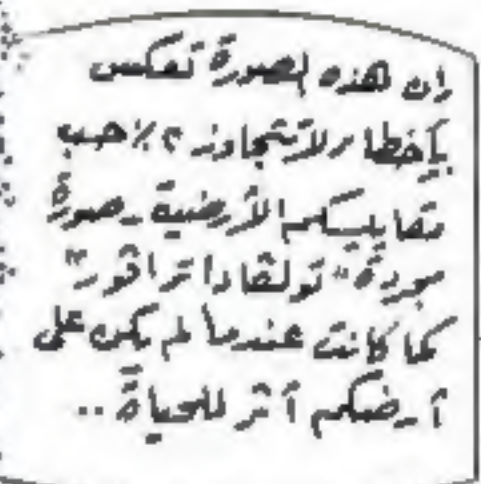 إن هذه الصورة تعكس
بأخطاء لا تتجاوز ٢٪ حسب
مقاييسكم الأرضية _ صورة
مجرة "تولقا داتراقور"
كما كانت عندما لم يكن على
أرضكم أثر للحياة ..